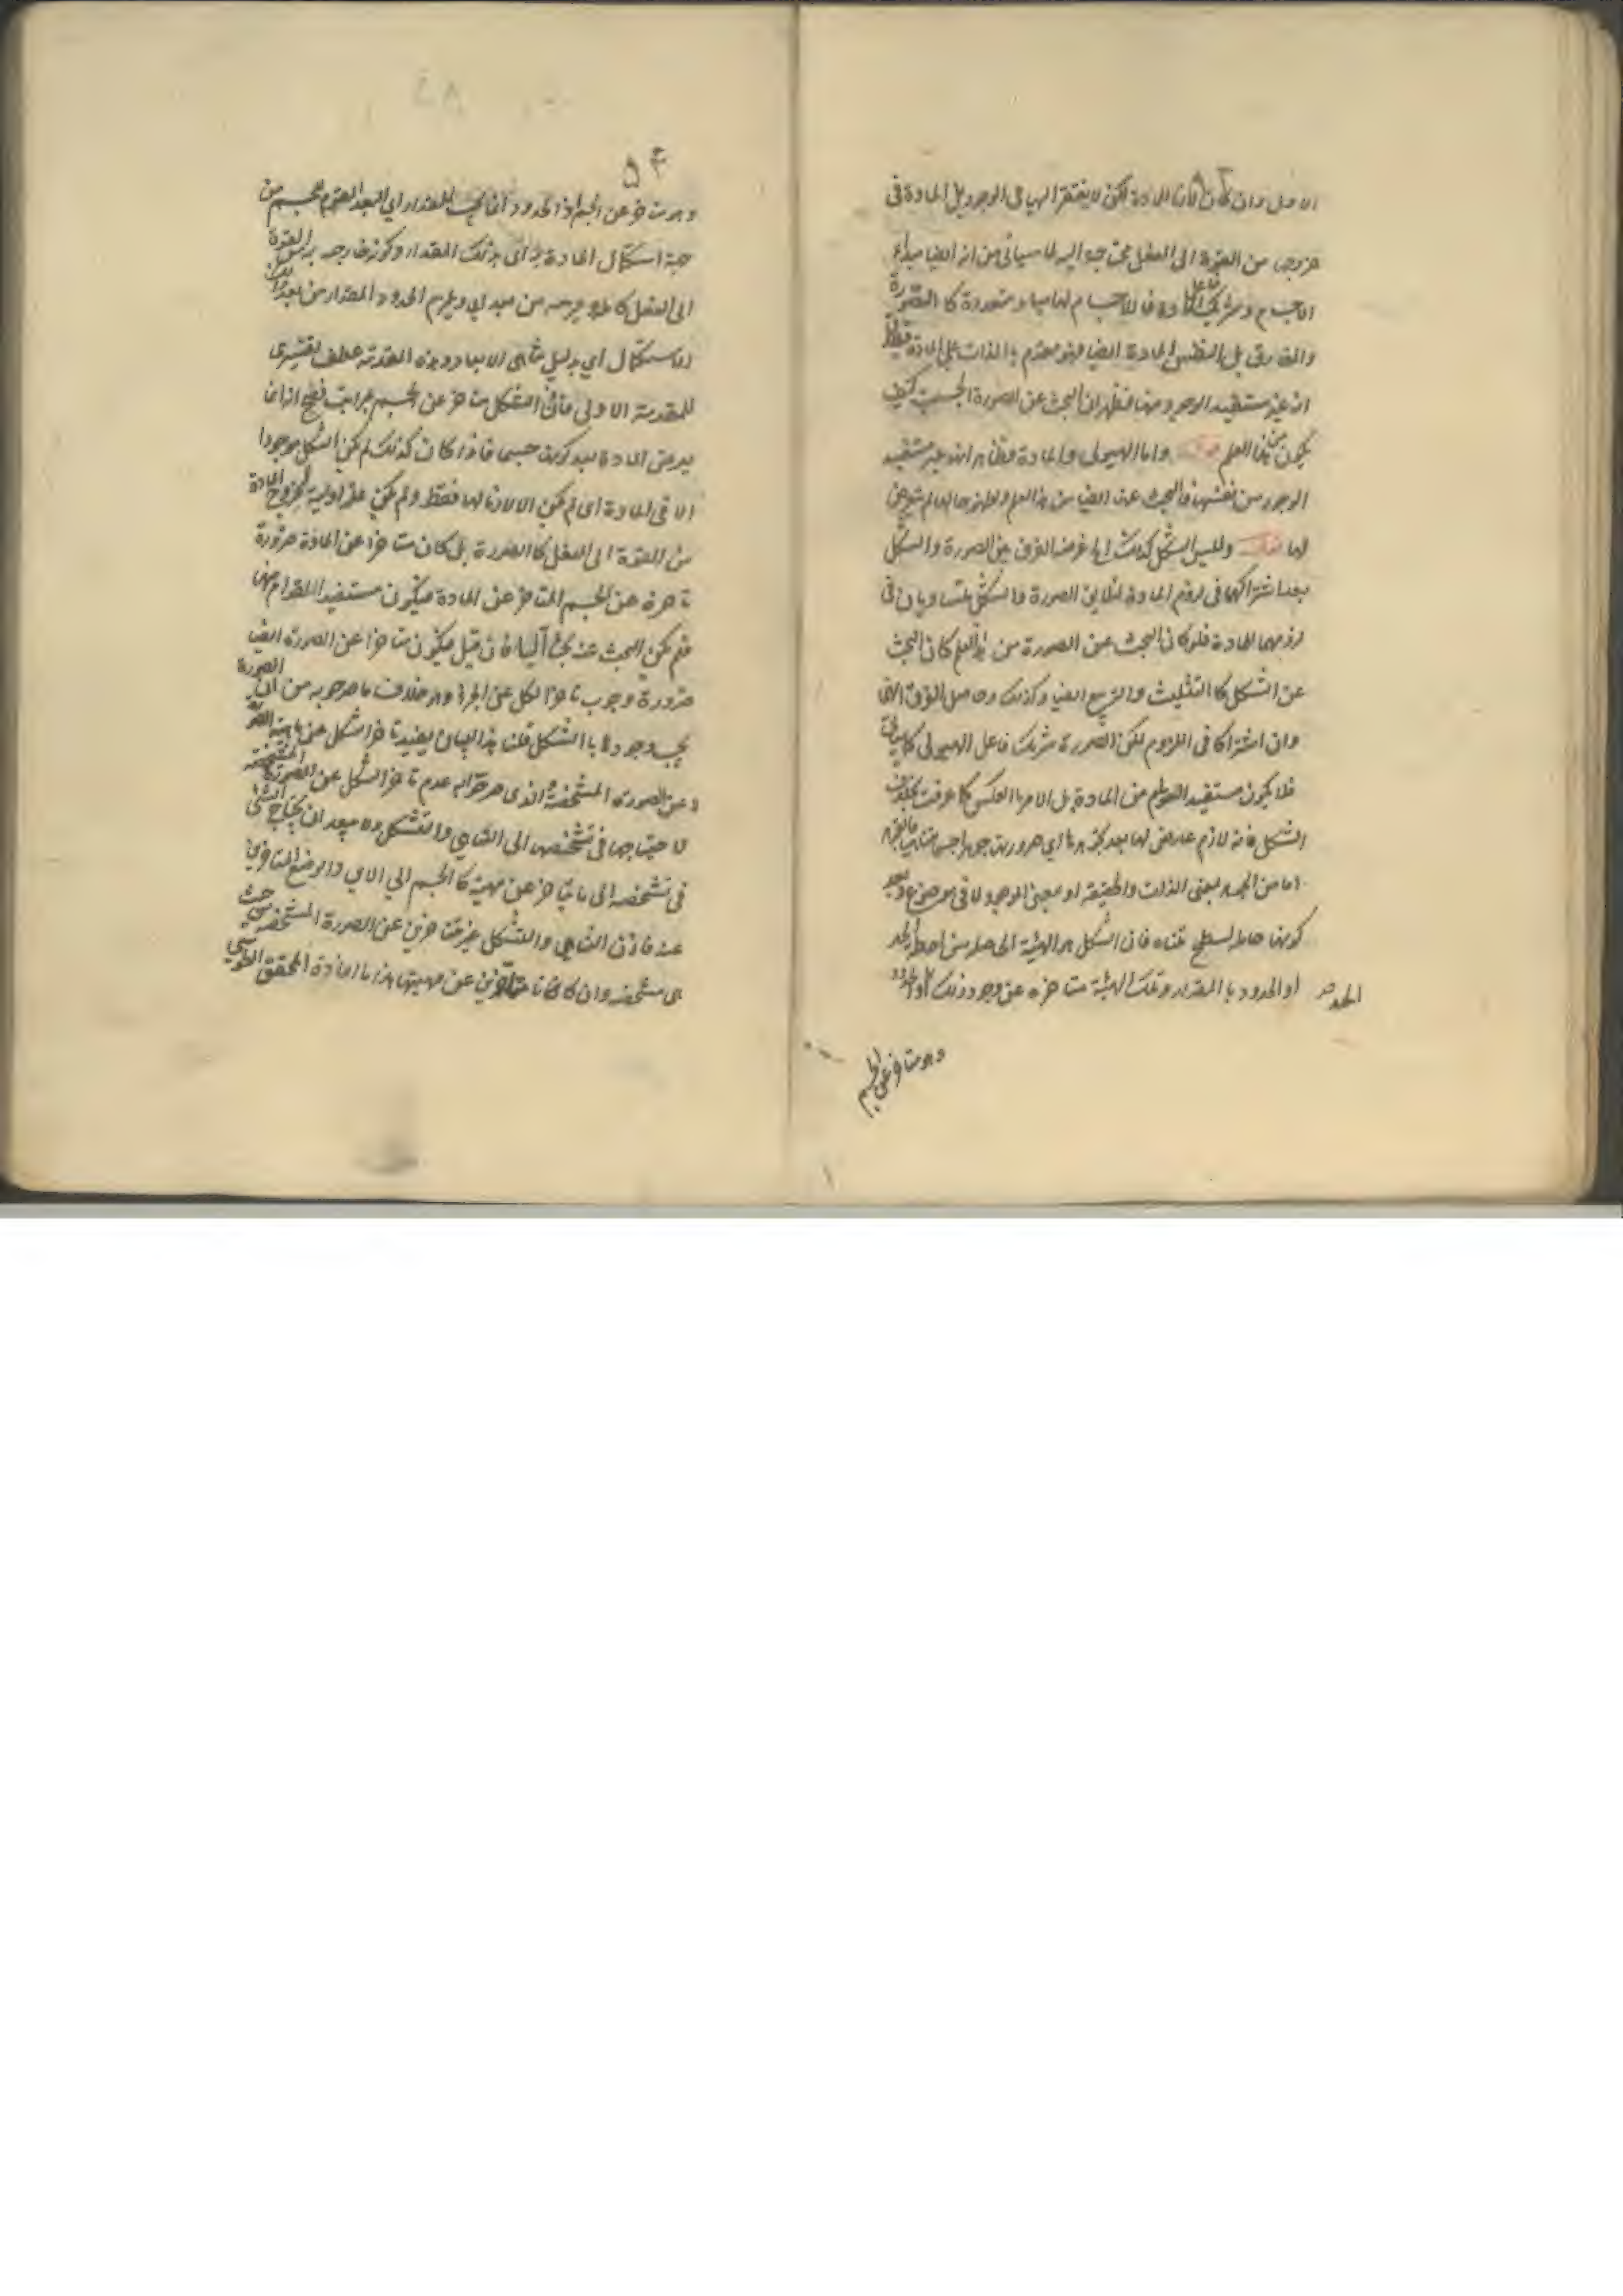 الاول وان كان لازما للمادة لكن لا يفتقر اليها في الوجود بل المادة في
خروجها من القوة الى الفعل محتاجة اليه لما سياتي من انه ايضا مبداء
الاجسام وشريك فاعل المادة فان للاجسام لها مباد متعددة كالصورة
والمفارق بل بالنظر الى المادة ايضا فهو متقدم بالذات على المادة فيظهر
انه غير مستفيد الوجود منها فظهر ان البحث عن الصورة الجسمية كيف
يكون من هذا العلم واما الهيولى والمادة فظاهر انه غير مستفيد
الوجود من نفسها فالبحث عنه ايضا من هذا العلم
لها وليس الشكل كذلك اه غرضه الفرق بين الصورة والشكل
بعد اشتراكهما في لزوم المادة الصورة والشكل متساويان في
لزومهما المادة فلو كان البحث عن الصورة من هذا العلم كان البحث
عن الشكل كالتثليث والتربيع ايضا كذلك وحاصل الفرق انهما
وان اشتركا في اللزوم لكن الصورة شريك فاعل الهيولى كما سياتي
فلا يكون مستفيد القوام من المادة بل الامر بالعكس كما عرفت بخلاف
الشكل فانه لازم عارض لها بعد تجوهرها اي صيرورتها جوهرا جسما متناهيا
اما من الجوهر بمعنى الذات والحقيقة او بمعنى الوجود لا في موضوع وبعد
كونها حاملا لسطح متناه فان الشكل هو الهيئة الحاصلة من احاطة الحد
او الحدود بالمقدار وتلك الهيئة متاخرة عن وجود ذلك الحد او الحدود
وهو متاخر عن الجسم
٥٤
وهو متاخر عن الجسم اذ الحدود انما يجب للمقدار اي البعد المقوم للجسم من
جهة استكمال المادة به اي بذلك المقدار وكونه خارجة به من القوة
الى الفعل كما من مبداء ويلزم الحدود المقدار من بعد ذلك
الاستكمال اي بدليل تناهي الابعاد وهذه المقدمة عطف تفسيري
للمقدمة الاولى فاذن الشكل متاخر عن الجسم بمراتب فصح انه انما
يعرض المادة بعد كونها جسما فاذا كان كذلك لم يكن الشكل موجودا
الا في المادة اي لم يكن الا لازما لها فقط ولم يكن علة اولية لخروج المادة
من القوة الى الفعل كالصورة بل كان متاخرا عن المادة ضرورة
تاخره عن الجسم المتاخر عن المادة فيكون مستفيد القوام منها
فلم يكن البحث عنه بحثا الهيا فان قيل فيكون متاخرا عن الصورة ايضا
ضرورة وجوب تاخر الكل عن الجزء وهو خلاف ما صرحوا به من ان الصورة
يجب وجودها بالشكل قلنا هذا البيان يفيد تاخر الشكل عن ماهية الصورة
لا عن الصورة المتشخصة والذي صرحوا به عدم تاخر الشكل عن الصورة المتشخصة
لاحتياجها في تشخصها الى التناهي والتشكل ولا يبعد ان يحتاج الشئ
في تشخصه الى ما يتاخر عن مهيته كالجسم الى الاين والوضع المتاخرين
عنه فاذن التناهي والتشكل غير متاخرين عن الصورة المتشخصة من حيث
هي متشخصة وان كانا متاخرين عن مهيتها هذا ما افاده المحقق الطوسي